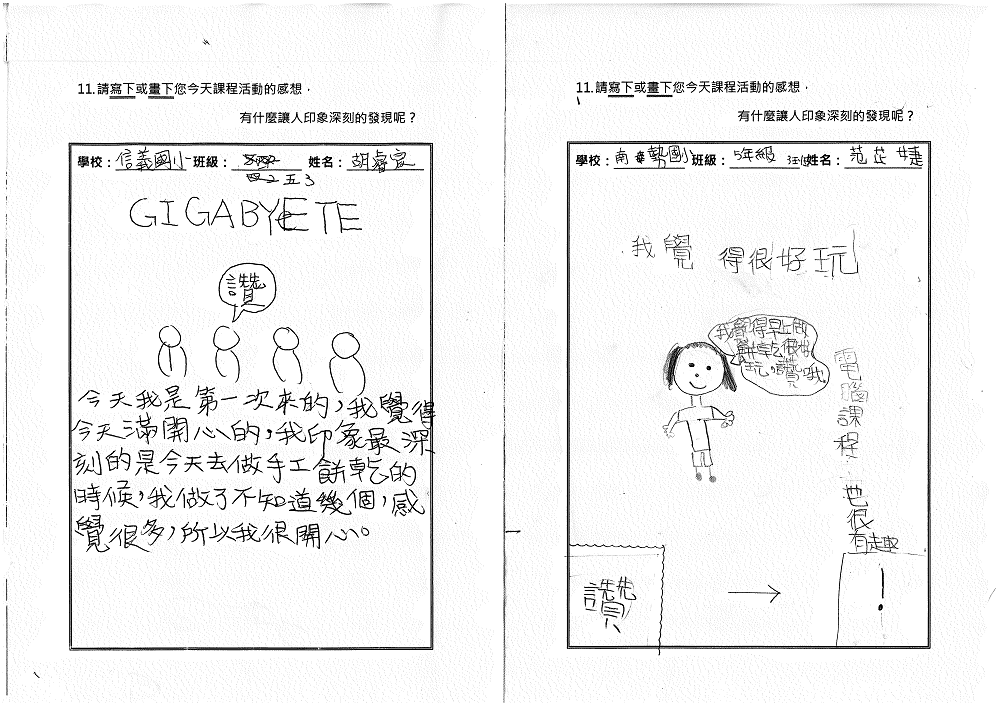 11.請寫下或畫下您今天課程活動的感想，
有什麼讓人印象深刻的發現呢？
學校：信義國小 班級： 五3 姓名：胡睿宸
GIGABYETE
讚
今天我是第一次來的，我覺得
今天滿開心的，我印象最深
刻的是今天去做手工餅乾的
時候，我做了不知道幾個，感
覺很多，所以我很開心。
11.請寫下或畫下您今天課程活動的感想，
有什麼讓人印象深刻的發現呢？
學校：南勢國小 班級：5年級 姓名：范芷婕
我覺得很好玩
我覺得早上做
餅乾很好
玩，讚哦
電腦課程也很有趣
讚
→
！